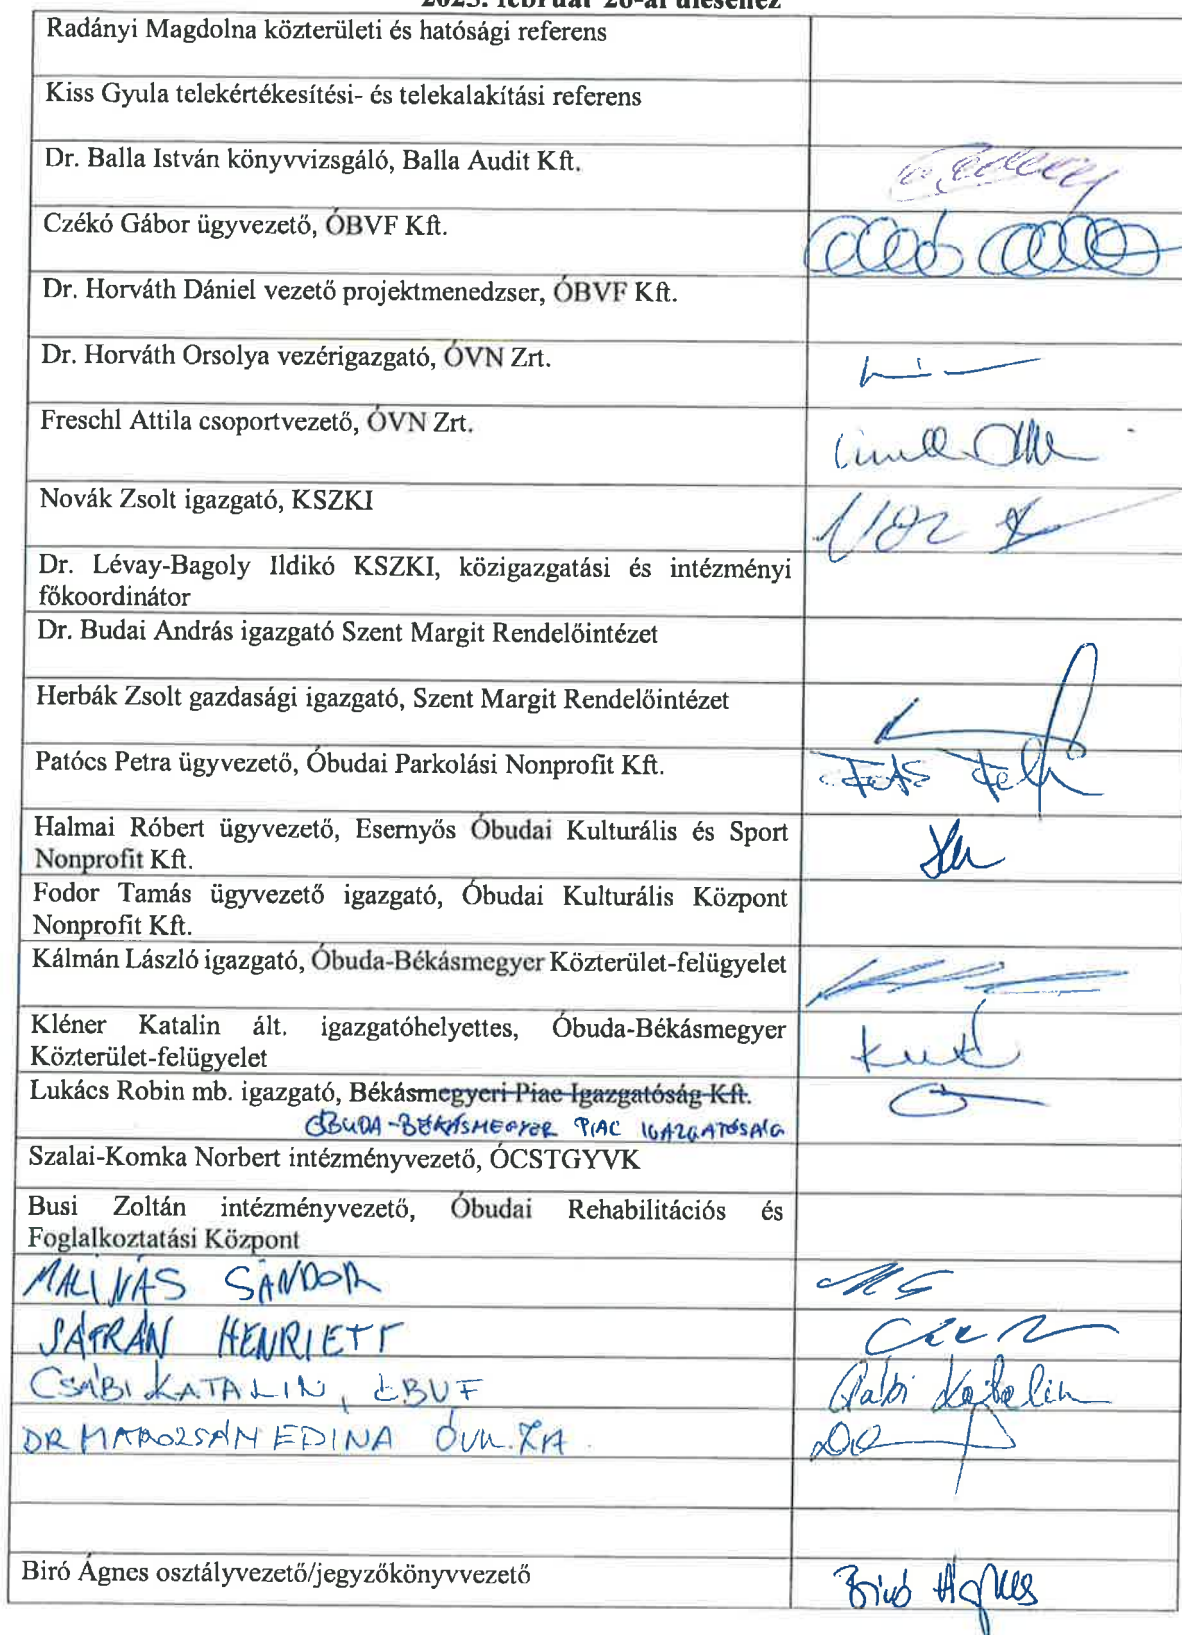 2025. február 26-ai üléséhez
Radányi Magdolna közterületi és hatósági referens
Kiss Gyula telekértékesítési- és telekalakítási referens
Dr. Balla István könyvvizsgáló, Balla Audit Kft.
Czékó Gábor ügyvezető, ÓBVF Kft.
Dr. Horváth Dániel vezető projektmenedzser, ÓBVF Kft.
Dr. Horváth Orsolya vezérigazgató, ÓVN Zrt.
Freschl Attila csoportvezető, ÓVN Zrt.
Novák Zsolt igazgató, KSZKI
Dr. Lévay-Bagoly Ildikó KSZKI, közigazgatási és intézményi
főkoordinátor
Dr. Budai András igazgató Szent Margit Rendelőintézet
Herbák Zsolt gazdasági igazgató, Szent Margit Rendelőintézet
Patócs Petra ügyvezető, Óbudai Parkolási Nonprofit Kft.
Halmai Róbert ügyvezető, Esernyős Óbudai Kulturális és Sport
Nonprofit Kft.
Fodor Tamás ügyvezető igazgató, Óbudai Kulturális Központ
Nonprofit Kft.
Kálmán László igazgató, Óbuda-Békásmegyer Közterület-felügyelet
Kléner Katalin ált. igazgatóhelyettes, Óbuda-Békásmegyer
Közterület-felügyelet
Lukács Robin mb. igazgató, Békásmegyeri Piac Igazgatóság Kft.
ÓBUDA-BÉKÁSMEGYER PIAC IGAZGATÓSÁG
Szalai-Komka Norbert intézményvezető, ÓCSTGYVK
Busi Zoltán intézményvezető, Óbudai Rehabilitációs és
Foglalkoztatási Központ
MALINÁS SÁNDOR
SÁTRÁN HENRIETT
CSABI KATALIN, ÓBVF Csabi Katalin
DR MAROZSÁN EDINA ÓVN. ZRT.
Biró Ágnes osztályvezető/jegyzőkönyvvezető Biró Ágnes